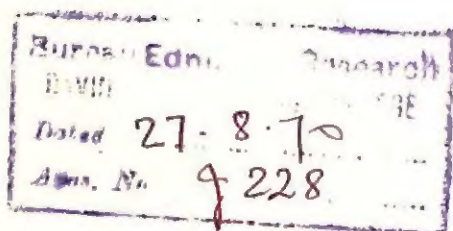 Bureau Ednl. Research
Dated 27.8.70
Accs. No 9228